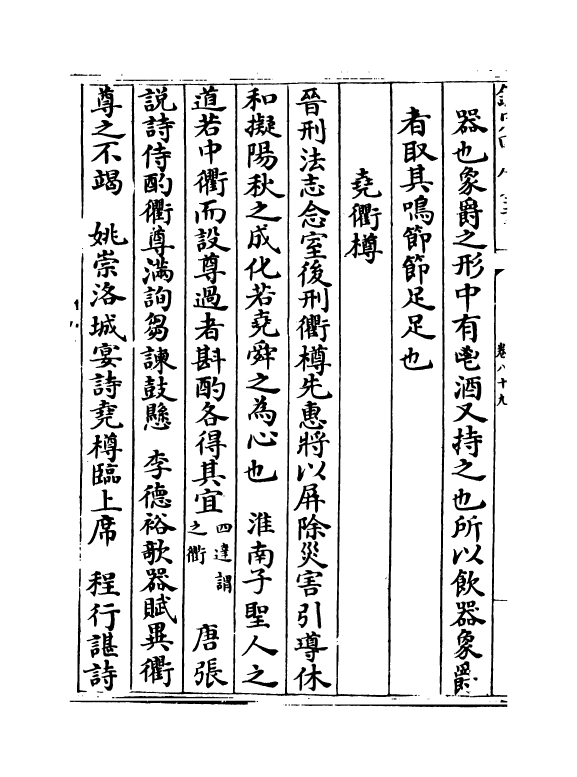 卷八十九
器也象爵之形中有鬯酒又持之也所以飲器象爵
者取其鳴節節足足也
堯衢樽
晉刑法志念室後刑衢樽先惠將以屏除災害引導休
和擬陽秋之成化若堯舜之為心也　淮南子聖人之
道若中衢而設尊過者斟酌各得其宜四達謂之衢　唐張
説詩侍酌衢尊滿詢芻諫鼓懸　李德裕欹器賦異衢
尊之不竭　姚崇洛城宴詩堯樽臨上席　程行諶詩